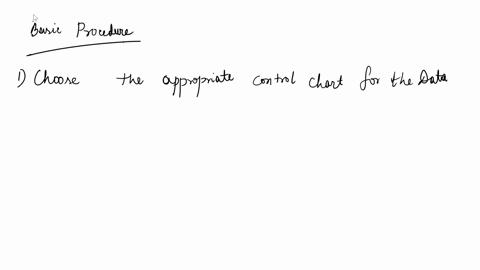 Basic Procedure
1) Choose the appropriate control chart for the Data